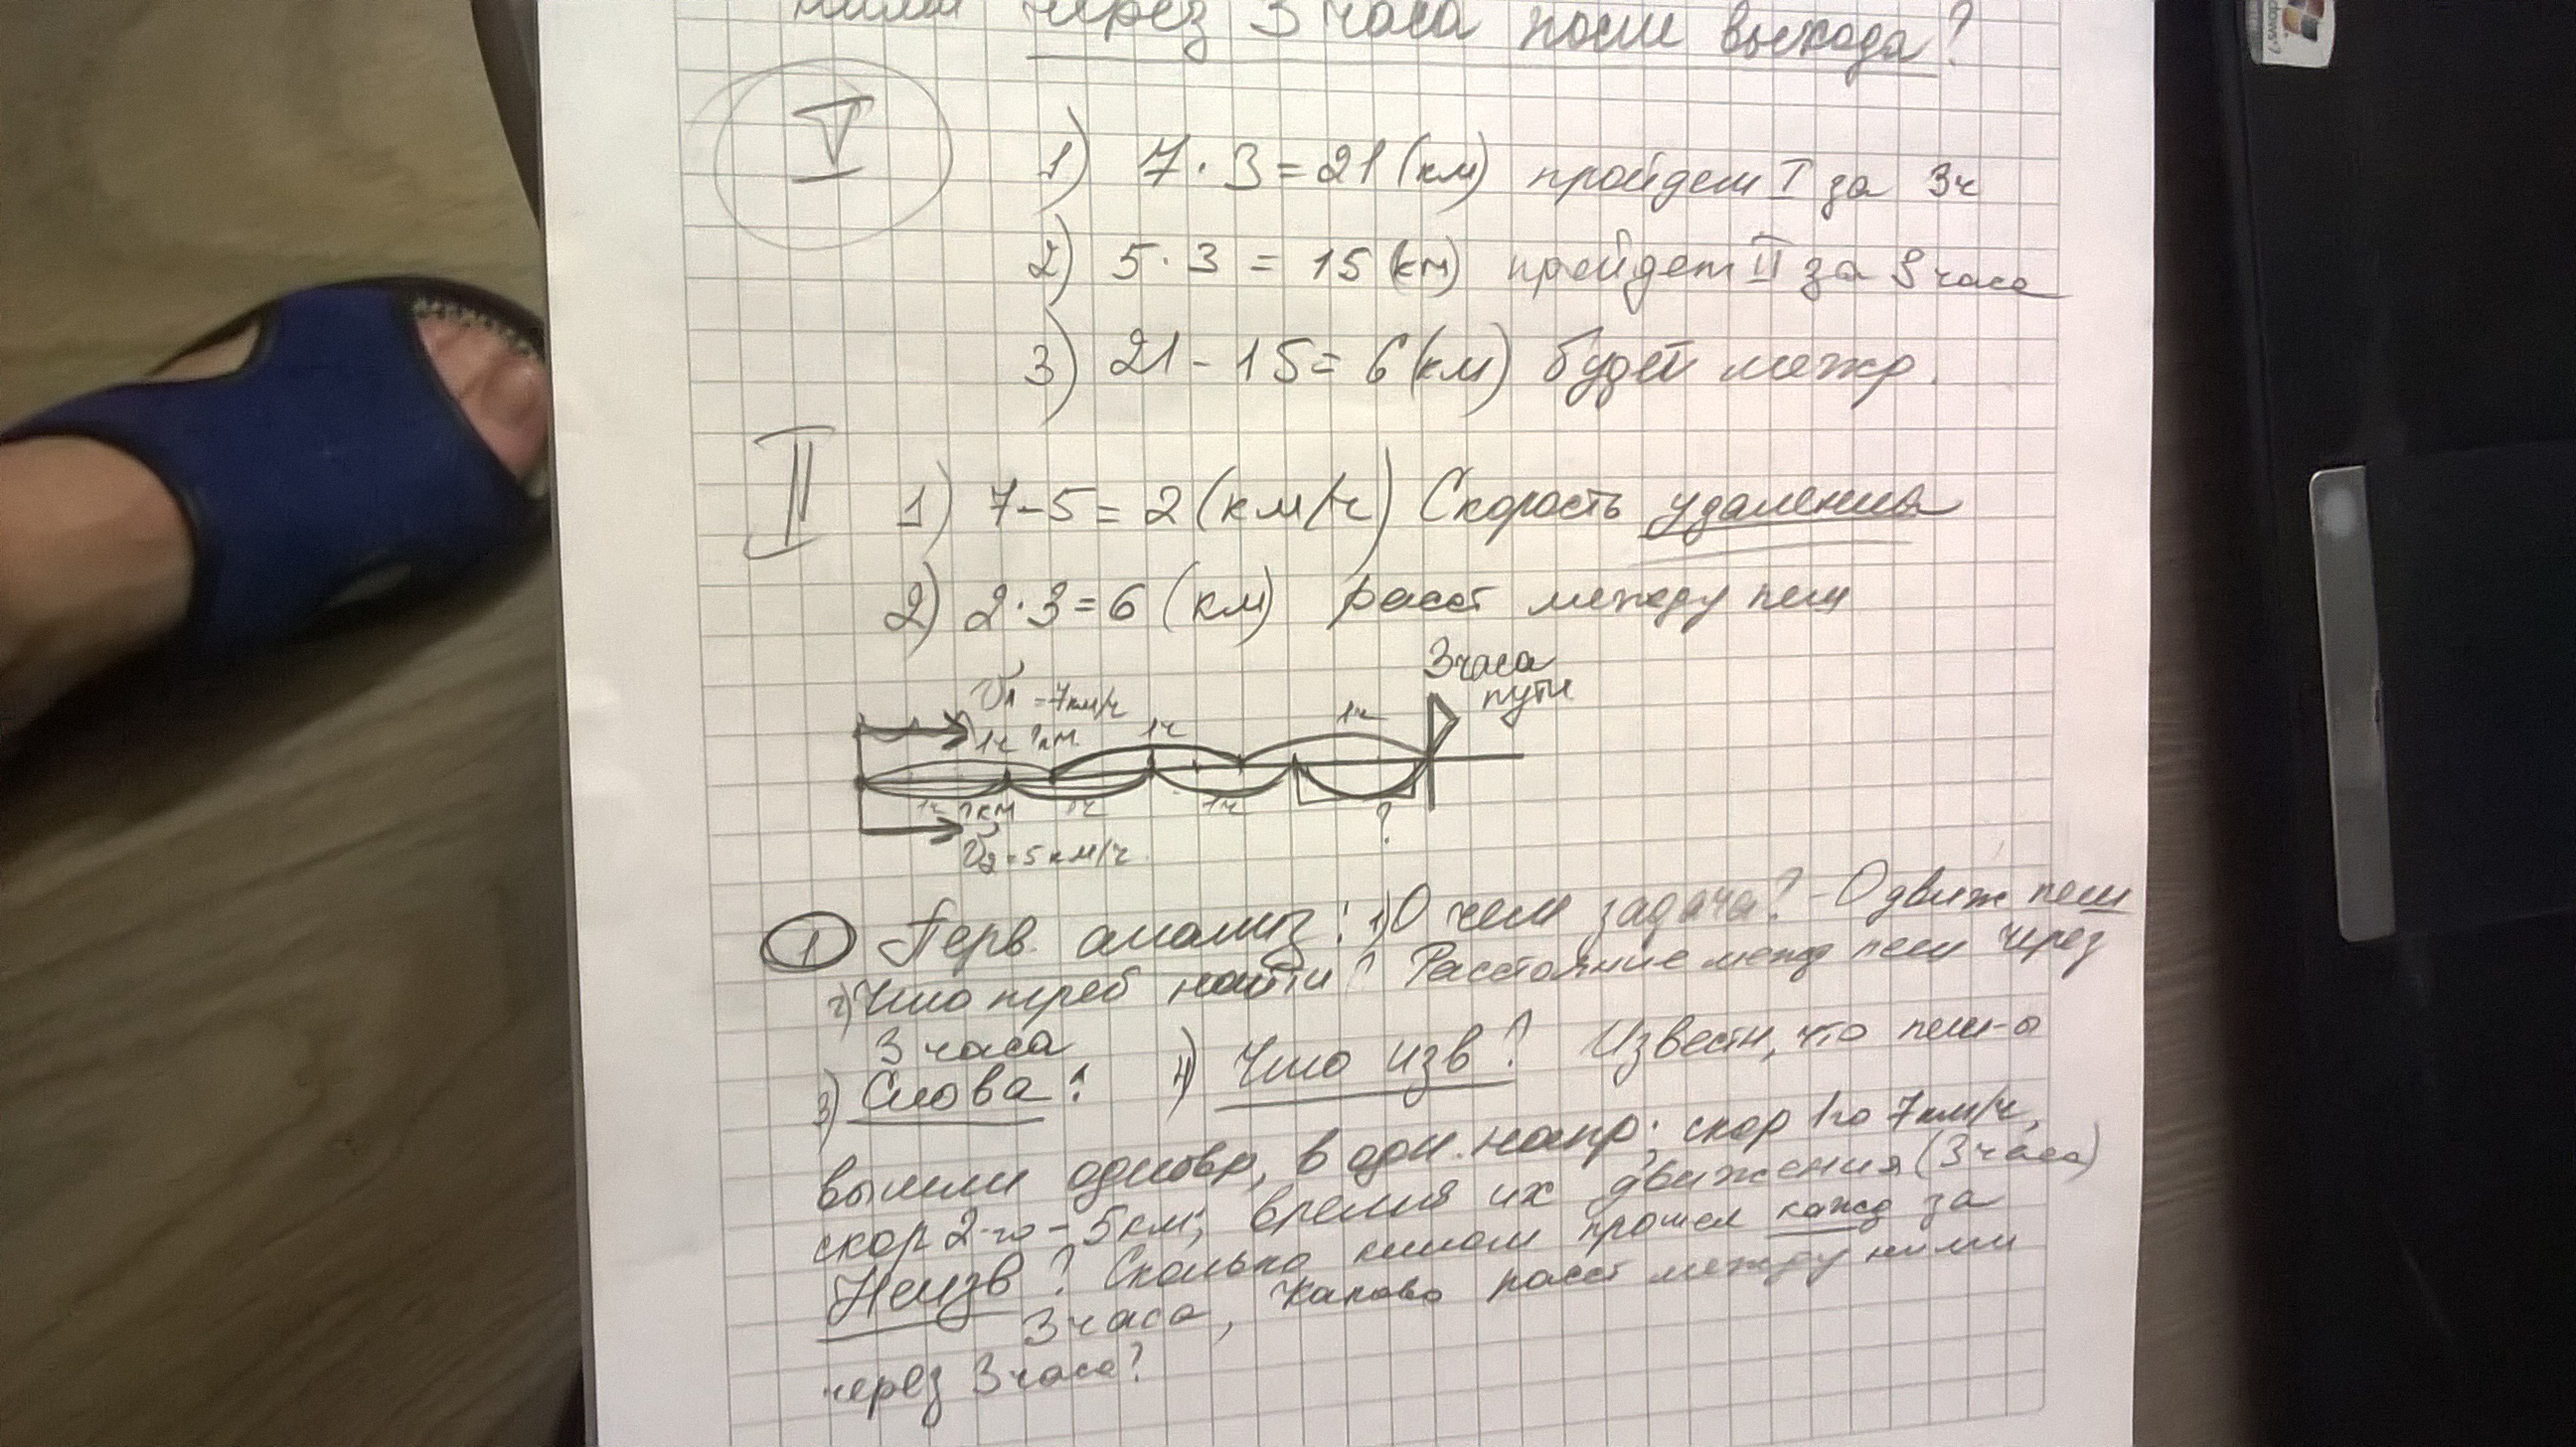 ними через 3 часа после выхода?
I
1) 7 · 3 = 21 (км) пройдет I за 3ч
2) 5 · 3 = 15 (км) пройдет II за 3 часа
3) 21 - 15 = 6 (км) будет межд.
II
1) 7 - 5 = 2 (км/ч) Скорость удаления
2) 2 · 3 = 6 (км) расст между пеш
3 часа
пути
V1 = 7км/ч
1ч ?км. 1ч 1ч
1ч ?км 1ч 1ч ?
V2 = 5 км/ч
1 Перв. анализ: 1) О чем задача? - О движ пеш
2) Что треб найти? Расстояние межд пеш через
3 часа
3) Слова: 4) Что изв? Известн, что пеш-ы
вышли одновр, в одн. напр; скор 1го 7км/ч,
скор 2-го - 5км; время их движения (3 часа)
Неизв? Сколько килом прошел кажд за
3 часа, каково расст между ними
через 3 часа?